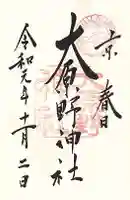 京春日
大原野神社
令和元年十一月二日